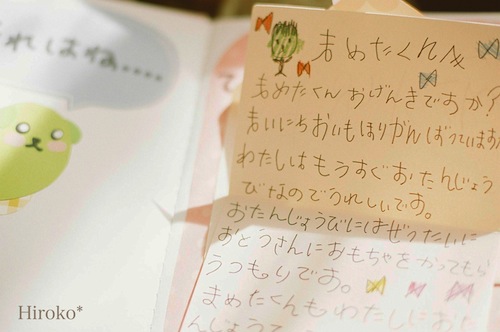 れしはね....
まめたくんへ
まめたくんおげんきですか?
まいにちおいもほりがんばっています
わたしはもうすぐおたんじょう
びなのでうれしいです。
おたんじょうびにはぜったいに
おとうさんにおもちゃをかってもら
うつもりです。
まめたくんもわたしにおた
んじょう
Hiroko*